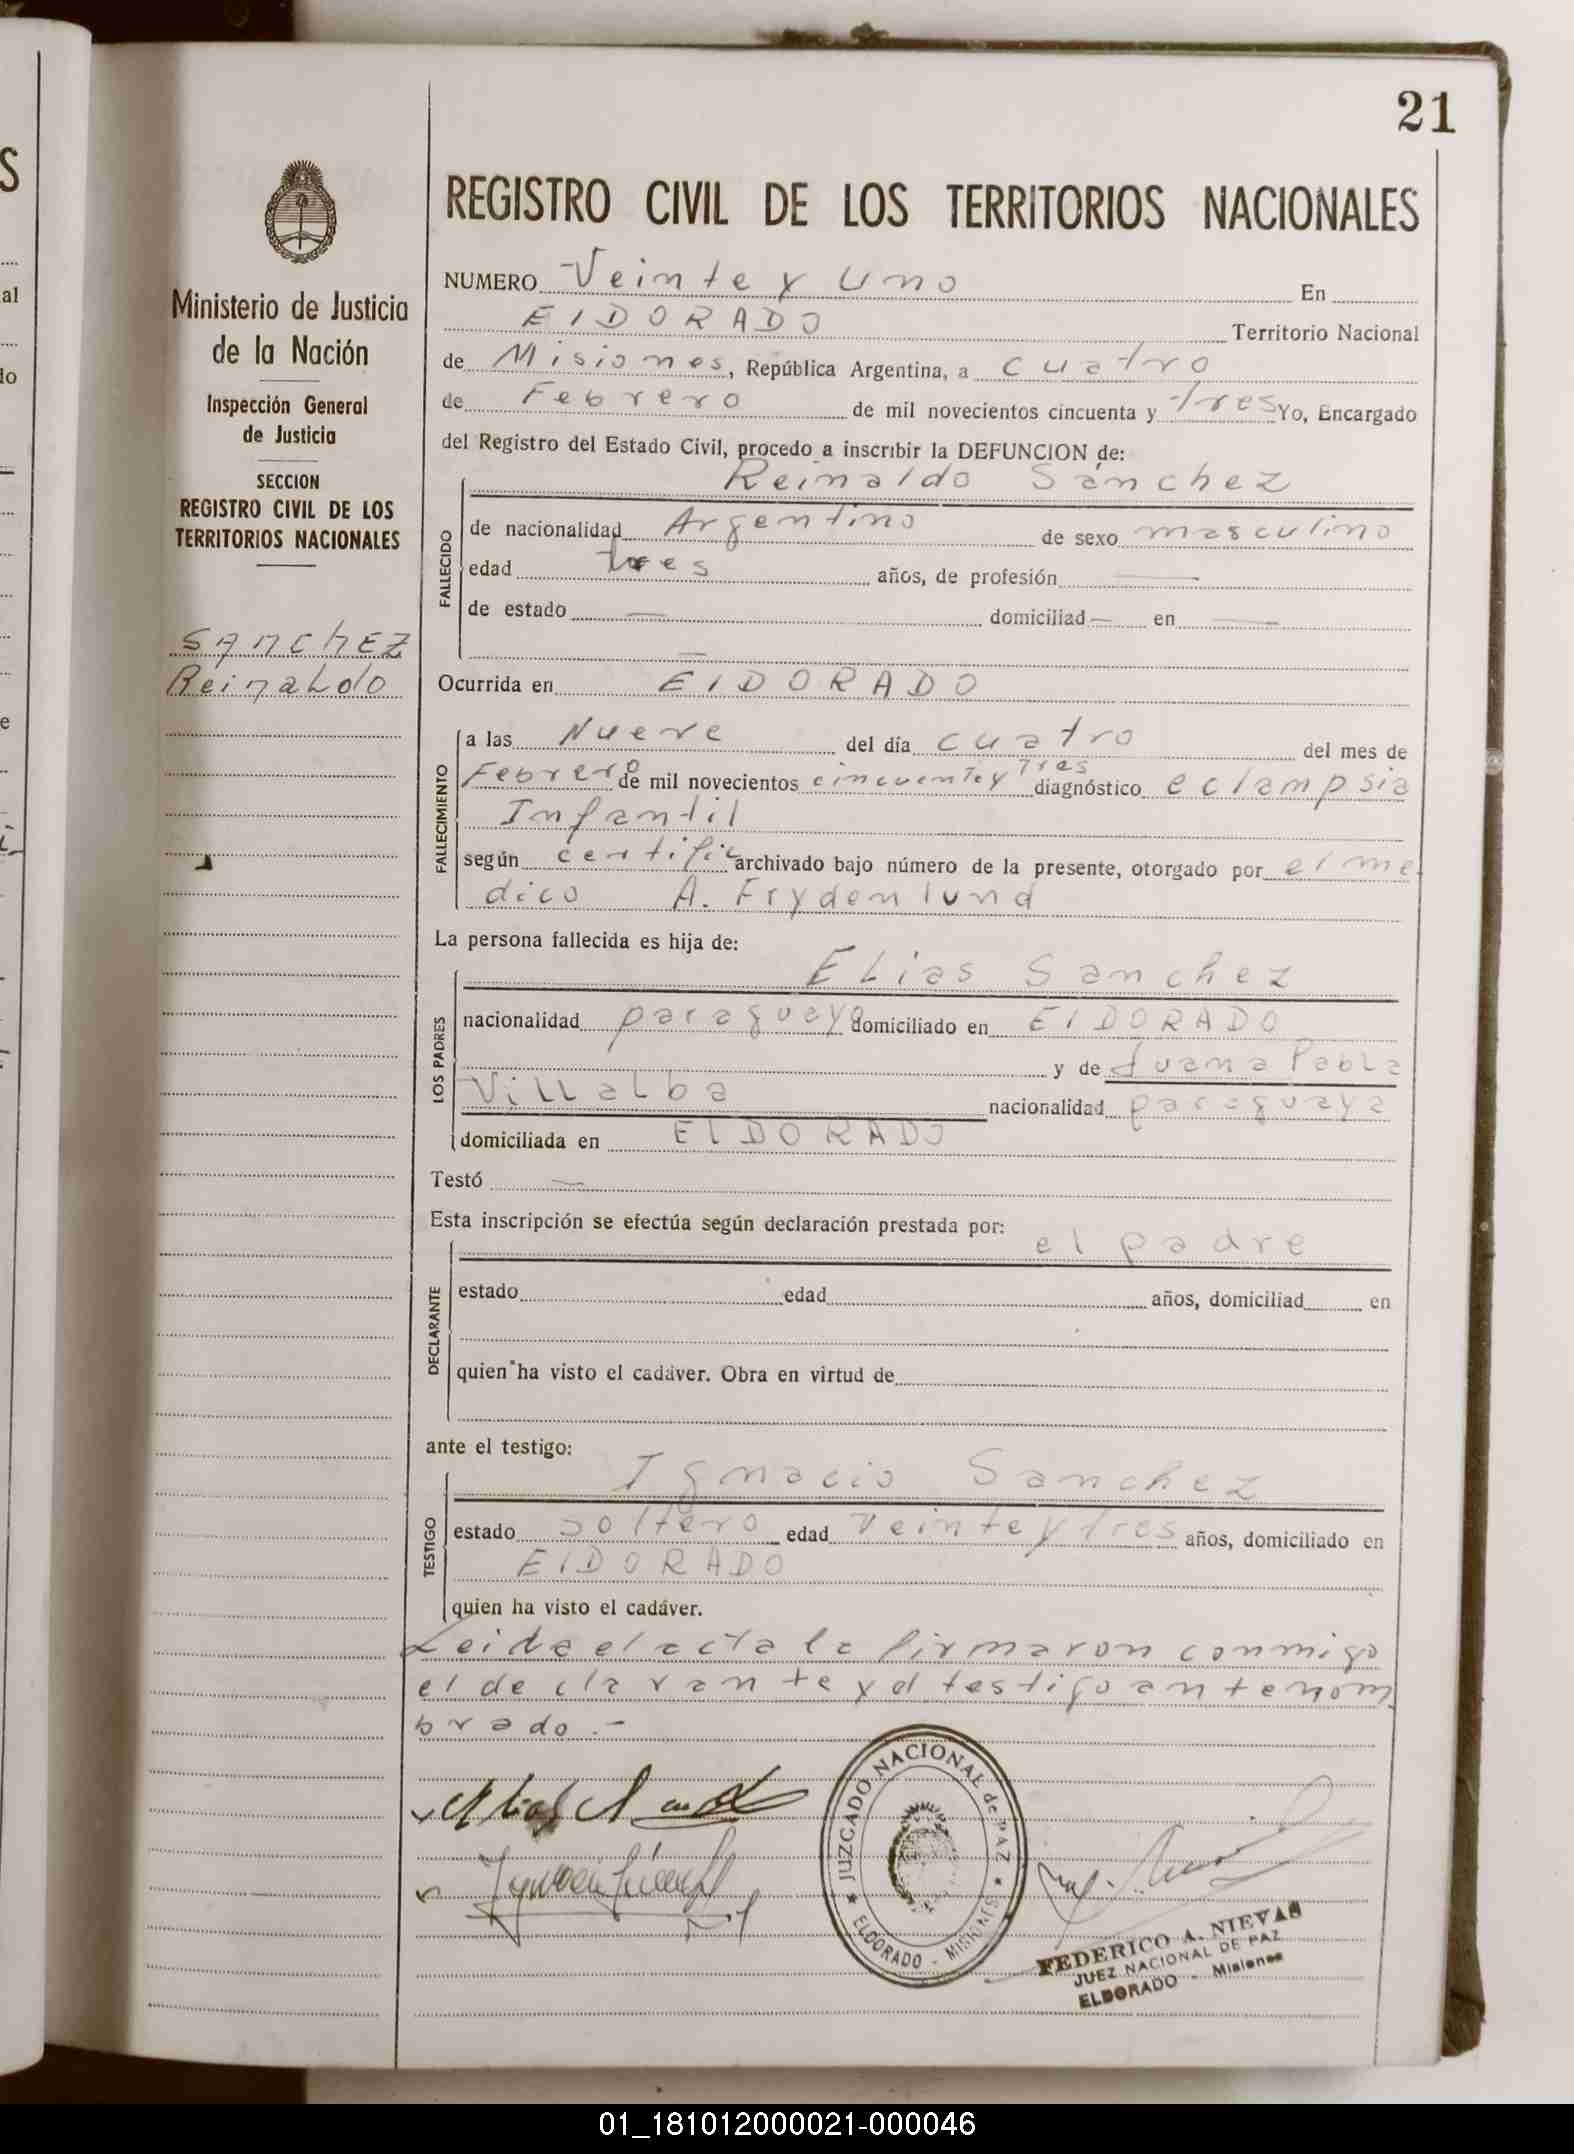 21
REGISTRO CIVIL DE LOS TERRITORIOS NACIONALES
Ministerio de Justicia
de la Nación
Inspección General
de Justicia
SECCION
REGISTRO CIVIL DE LOS
TERRITORIOS NACIONALES
SANCHEZ
Reinaldo
NUMERO Veinte y Uno En
ElDORADO Territorio Nacional
de Misiones, República Argentina, a cuatro
de Febrero de mil novecientos cincuenta y tres Yo, Encargado
del Registro del Estado Civil, procedo a inscribir la DEFUNCION de:
Reinaldo Sánchez
FALLECIDO
de nacionalidad Argentino de sexo masculino
edad tres años, de profesión —
de estado — domiciliad — en —
—
Ocurrida en ElDORADO
FALLECIMIENTO
a las Nueve del día cuatro del mes de
Febrero de mil novecientos cincuentaytres diagnóstico eclampsia
Infantil
según certific archivado bajo número de la presente, otorgado por el me
dico A. Frydenlund
La persona fallecida es hija de:
LOS PADRES
ELias Sanchez
nacionalidad paraguayo domiciliado en ElDORADO
y de Juana Pabla
Villalba nacionalidad paraguaya
domiciliada en ElDORADO
Testó —
Esta inscripción se efectúa según declaración prestada por:
el padre
DECLARANTE
estado edad años, domiciliad en
quien ha visto el cadáver. Obra en virtud de
ante el testigo:
Ignacio Sanchez
TESTIGO
estado soltero edad veinteytres años, domiciliado en
ElDORADO
quien ha visto el cadáver.
Leida el acta la firmaron conmigo
el declarante y el testigo antenom
brado.-
JUZGADO NACIONAL de PAZ
ELDORADO - MISIONES
FEDERICO A. NIEVAS
JUEZ NACIONAL DE PAZ
ELDORADO - Misiones
01_181012000021-000046